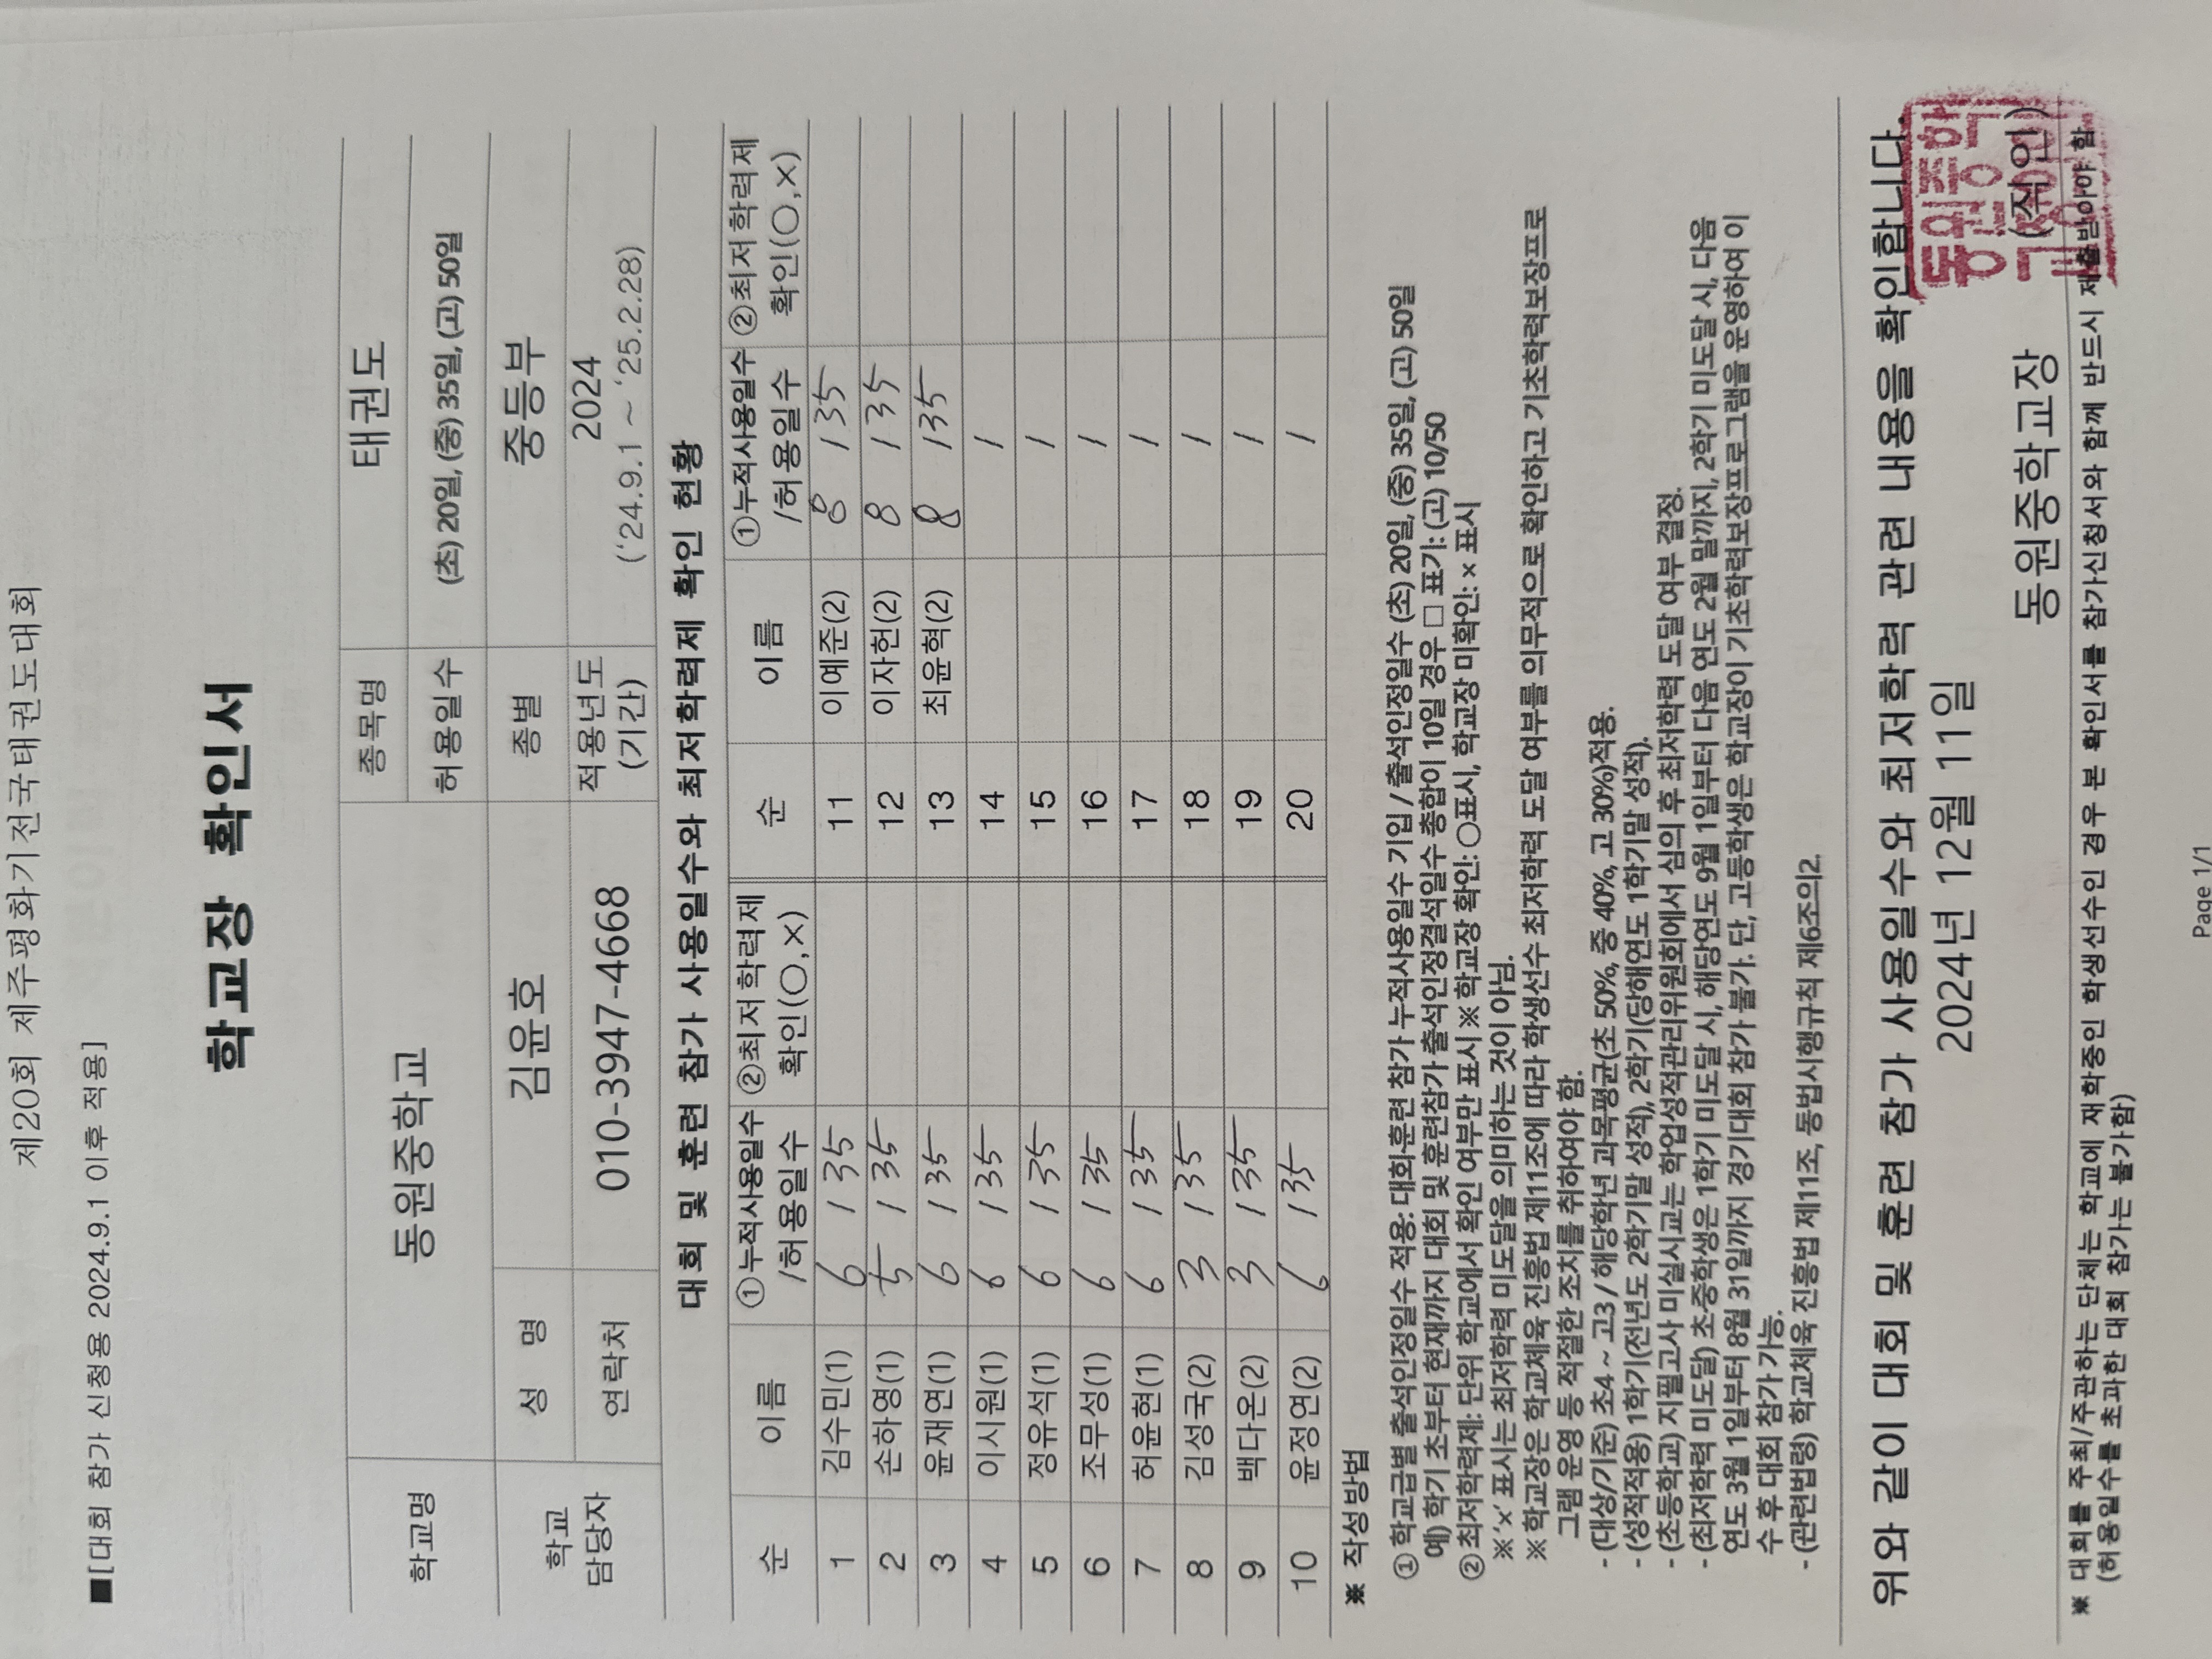 제20회 제주평화기전국태권도대회
■[대회 참가 신청용 2024.9.1 이후 적용]
학교장 확인서
학교명 동원중학교 종목명 태권도
허용일수 (초) 20일, (중) 35일, (고) 50일
학교 담당자 성 명 김윤호 종별 중등부
연락처 010-3947-4668 적용년도 (기간) 2024 (‘24.9.1 ~ ‘25.2.28)
대회 및 훈련 참가 사용일수와 최저학력제 확인 현황
순 이름 ①누적사용일수 /허용일수 ②최저학력제 확인(○,×) 순 이름 ①누적사용일수 /허용일수 ②최저학력제 확인(○,×)
1 김수민(1) 6 / 35 11 이예준(2) 8 / 35
2 손하영(1) 5 / 35 12 이자헌(2) 8 / 35
3 윤재연(1) 6 / 35 13 최윤혁(2) 8 / 35
4 이시원(1) 6 / 35 14 /
5 정유석(1) 6 / 35 15 /
6 조무성(1) 6 / 35 16 /
7 허윤현(1) 6 / 35 17 /
8 김성국(2) 3 / 35 18 /
9 백다온(2) 3 / 35 19 /
10 윤정연(2) 6 / 35 20 /
※ 작성방법
① 학교급별 출석인정일수 적용: 대회·훈련 참가 누적사용일수 기입 / 출석인정일수 (초) 20일, (중) 35일, (고) 50일
예) 학기 초부터 현재까지 대회 및 훈련참가 출석인정결석일수 총합이 10일 경우 □ 표기: (고) 10/50
② 최저학력제: 단위 학교에서 확인 여부만 표시 ※ 학교장 확인: ○표시, 학교장 미확인: × 표시
※ ‘×’ 표시는 최저학력 미도달을 의미하는 것이 아님.
※ 학교장은 학교체육 진흥법 제11조에 따라 학생선수 최저학력 도달 여부를 의무적으로 확인하고 기초학력보장프로
그램 운영 등 적절한 조치를 취하여야 함.
- (대상/기준) 초4 ~ 고3 / 해당학년 과목평균(초 50%, 중 40%, 고 30%)적용.
- (성적적용) 1학기(전년도 2학기말 성적), 2학기(당해연도 1학기말 성적).
- (초등학교) 지필고사 미실시교는 학업성적관리위원회에서 심의 후 최저학력 도달 여부 결정.
- (최저학력 미도달) 초·중학생은 1학기 미도달 시, 해당연도 9월 1일부터 다음 연도 2월 말까지, 2학기 미도달 시, 다음
연도 3월 1일부터 8월 31일까지 경기대회 참가 불가. 단, 고등학생은 학교장이 기초학력보장프로그램을 운영하여 이
수 후 대회 참가 가능.
- (관련법령) 학교체육 진흥법 제11조, 동법시행규칙 제6조의2.
위와 같이 대회 및 훈련 참가 사용일수와 최저학력 관련 내용을 확인합니다.
2024년 12월 11일
동원중학교장 (직인)
※ 대회를 주최/주관하는 단체는 학교에 재학중인 학생선수인 경우 본 확인서를 참가신청서와 함께 반드시 제출받아야 함
(허용일수를 초과한 대회 참가는 불가함)
Page 1/1